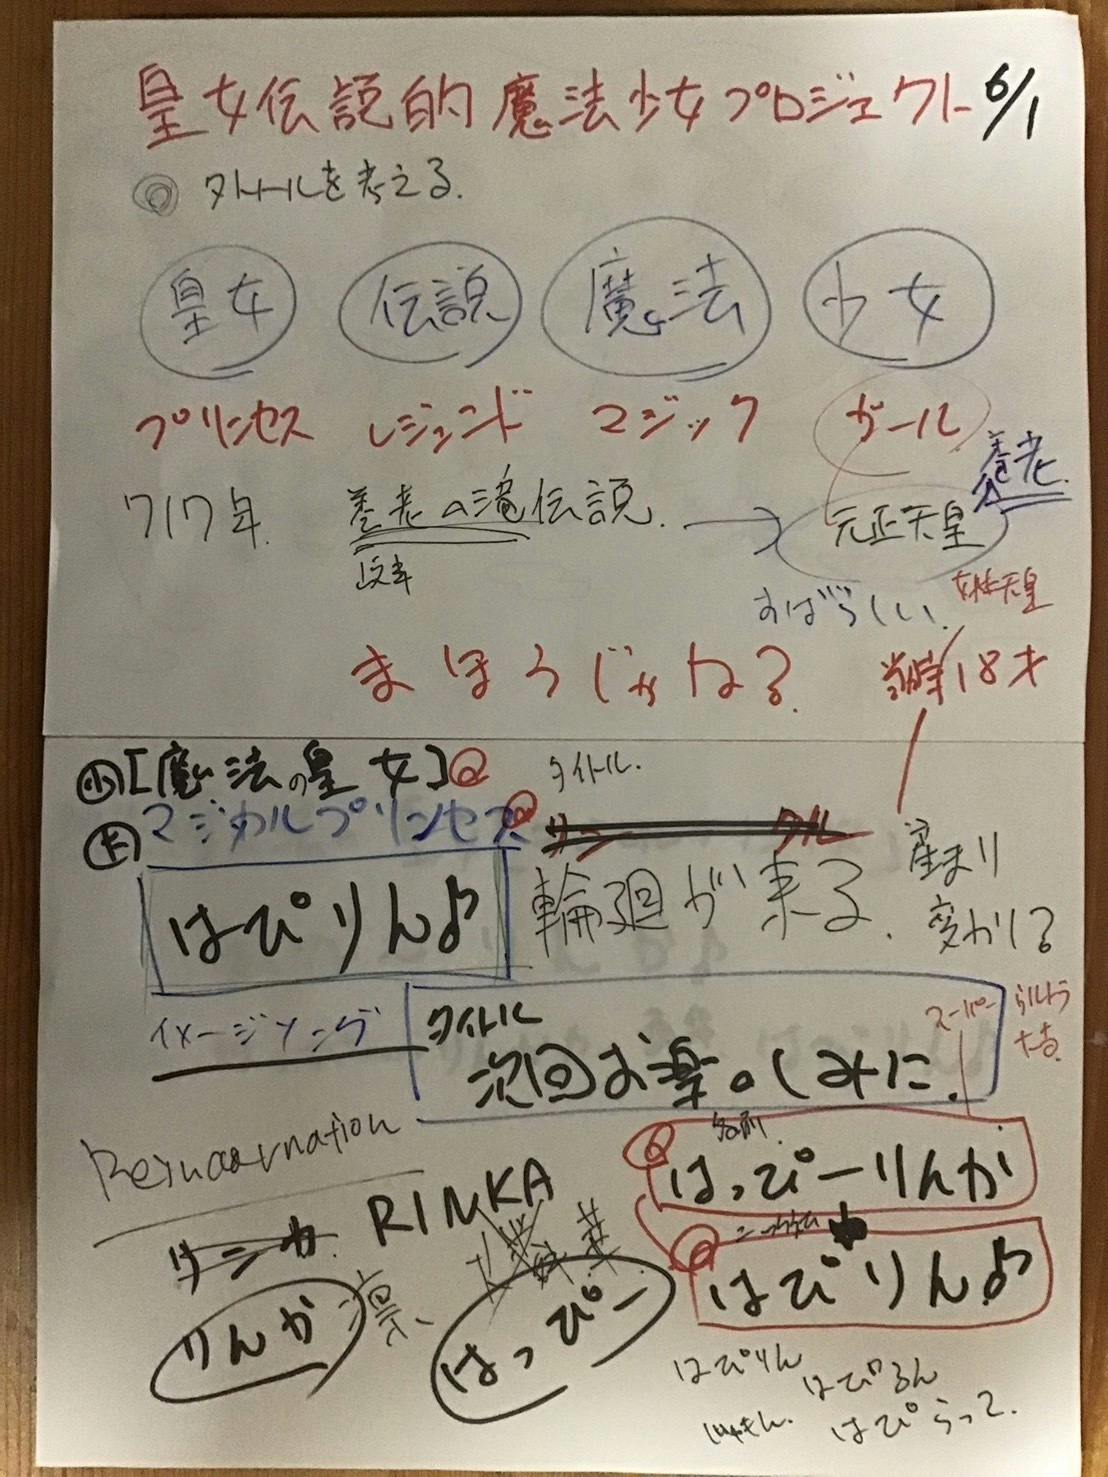 皇女伝説的魔法少女プロジェクト 6/1
◎ タイトルを考える.
皇女 伝説 魔法 少女
プリンセス レジェンド マジック ガール
養老
717年. 養老の滝伝説. → 元正天皇
女性天皇
すばらしい.
まほうじゃね? 当時18才
小[魔法の皇女]
タイトル.
マジカルプリンセス
はぴりん♪
輪廻が来る.
産まり
変わり?
イメージソング
タイトル
次回お楽。しみに.
スーパーウルトラ
大吉
Reincarnation
名前.
はっぴーりんか
RINKA
リンカ
ニックネーム
はぴりん♪
りんか 凛、
はっぴー
はぴりん
はぴるん
はぴらって.